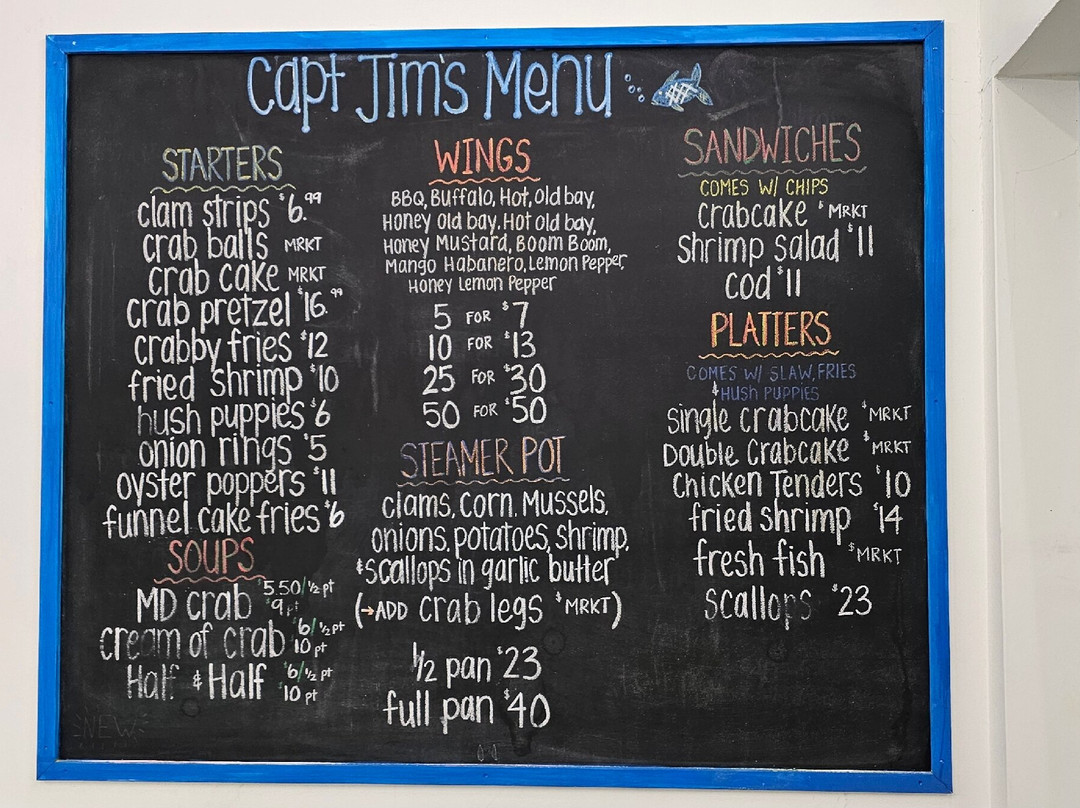 Capt Jim's Menu
STARTERS
clam strips $6.99
crab balls MRKT
crab cake MRKT
crab pretzel $16.99
crabby fries $12
fried shrimp $10
hush puppies $6
onion rings $5
oyster poppers $11
funnel cake fries $6
SOUPS
MD crab $5.50/½ pt
$9 pt
cream of crab $6/½ pt
10 pt
Half & Half $6/½ pt
$10 pt
NEW
WINGS
BBQ, Buffalo, Hot, Old bay,
Honey Old bay, Hot Old bay,
Honey Mustard, Boom Boom,
Mango Habanero, Lemon Pepper,
Honey Lemon Pepper
5 FOR $7
10 FOR $13
25 FOR $30
50 FOR $50
STEAMER POT
clams, corn, Mussels,
onions, potatoes, shrimp,
& scallops in garlic butter
(→ADD crab legs $MRKT)
½ pan $23
full pan $40
SANDWICHES
COMES W/ CHIPS
crabcake $MRKT
shrimp salad $11
cod $11
PLATTERS
COMES W/ SLAW, FRIES
& HUSH PUPPIES
single crabcake $MRKT
Double Crabcake $MRKT
Chicken Tenders $10
fried shrimp $14
fresh fish $MRKT
scallops $23